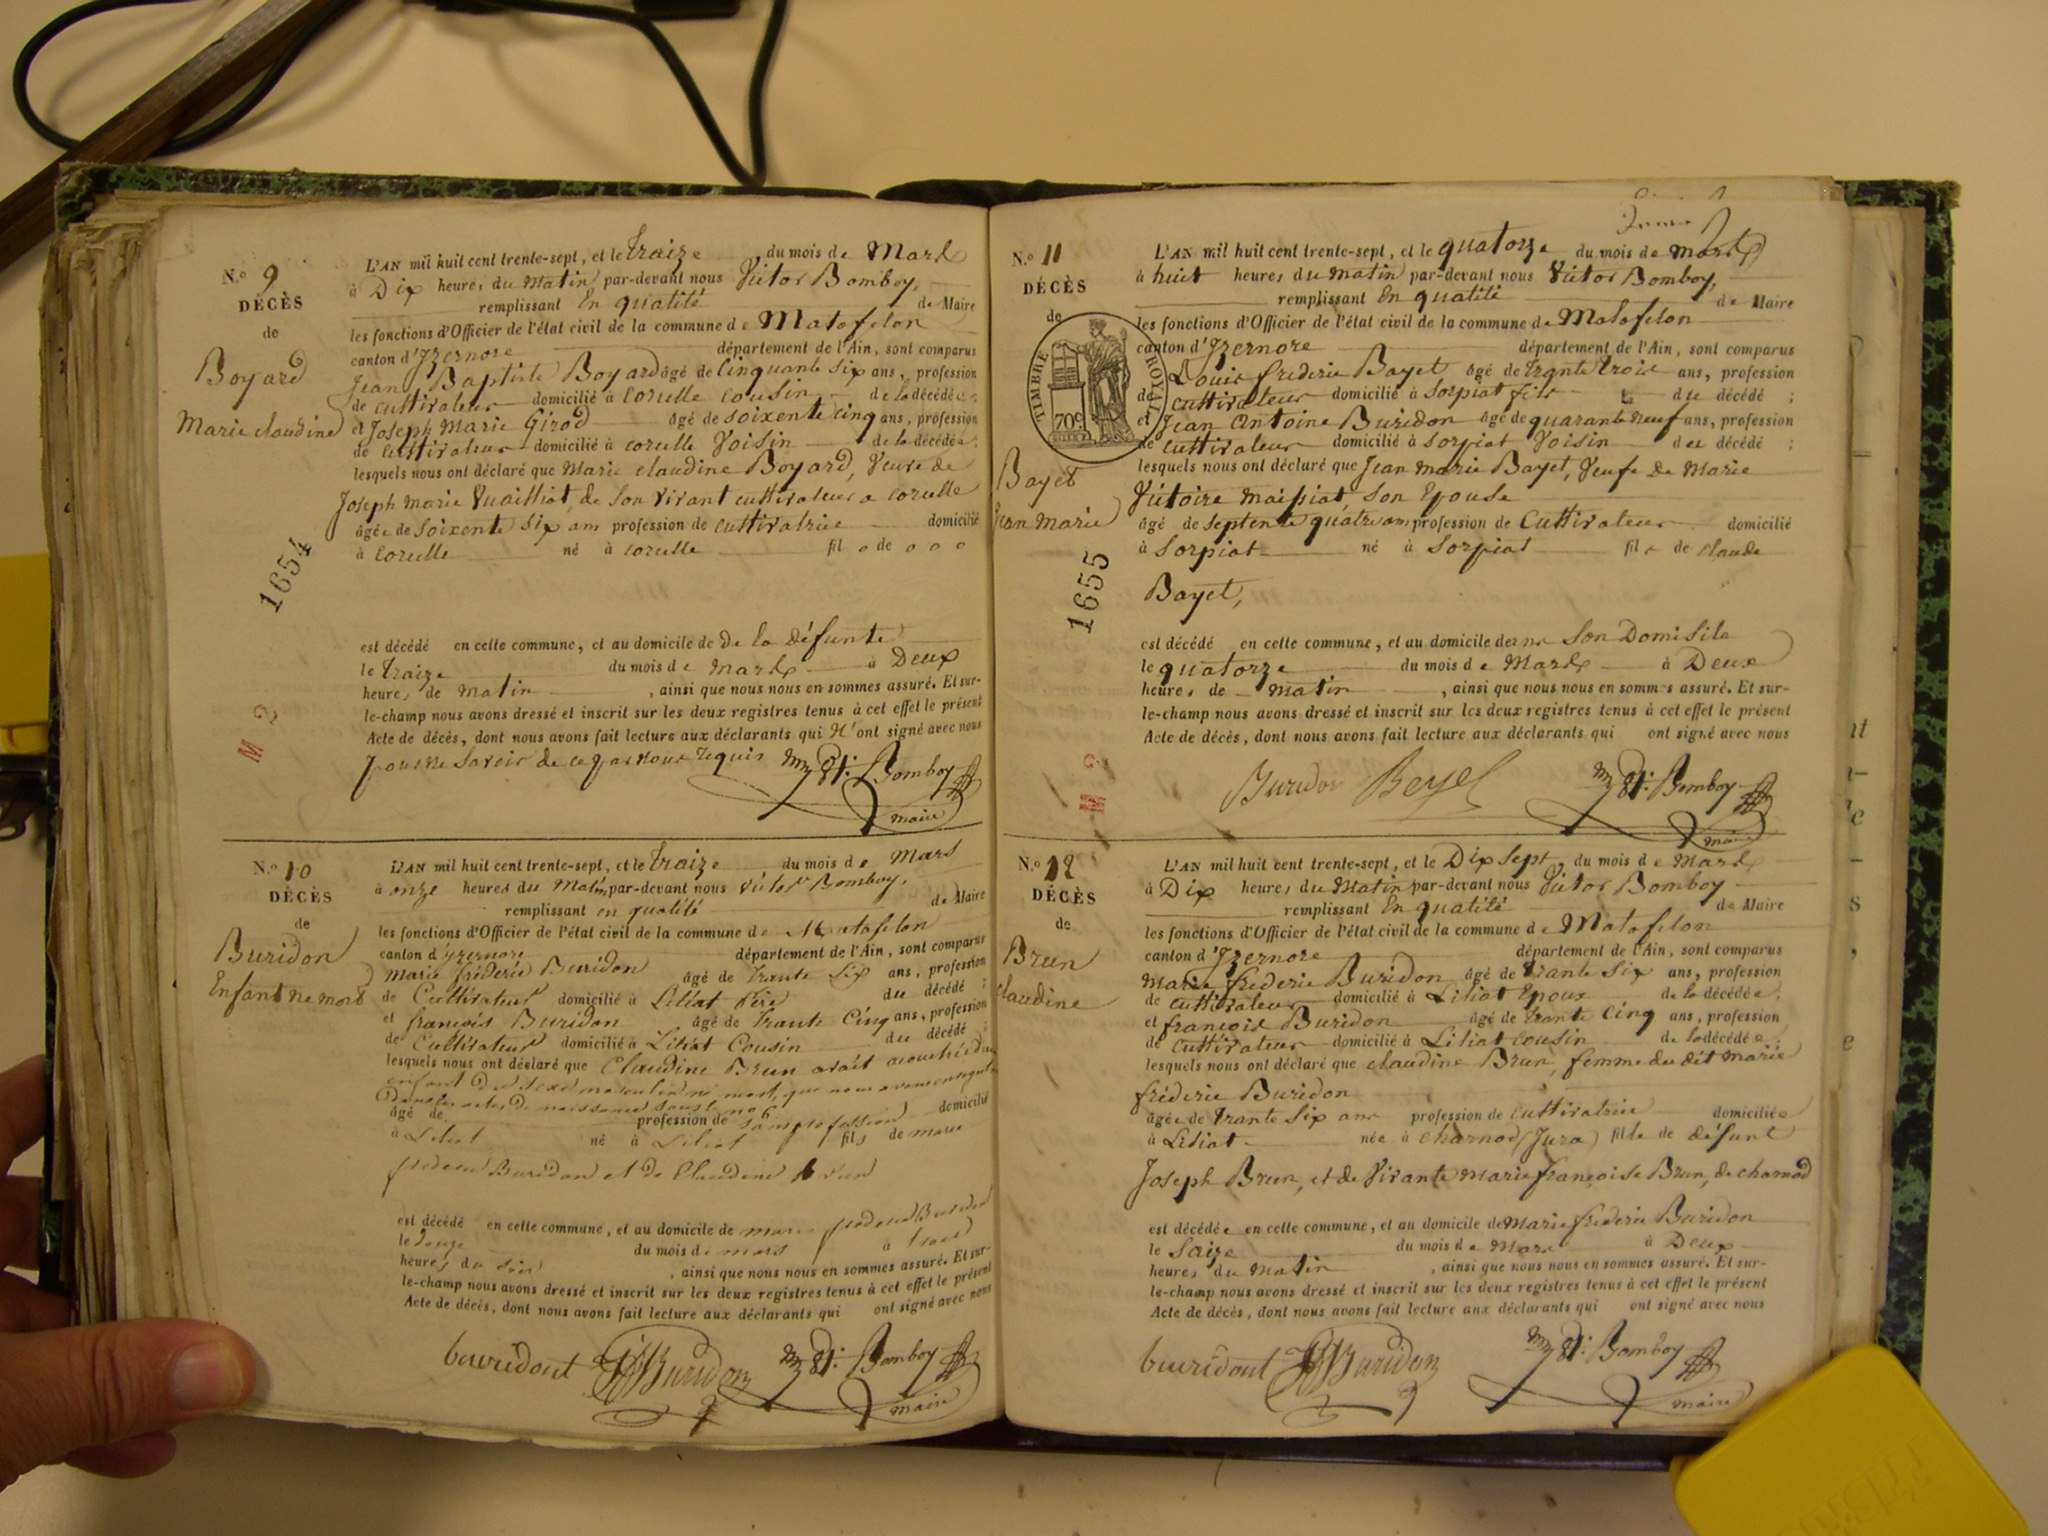 N.º 9
DÉCÈS
de
Boyard
Marie claudine
1654
M 2
L'AN mil huit cent trente-sept, et le traize du mois de Mars
à Dix heures du Matin par-devant nous Victor Bomboy,
remplissant En qualité de Maire
les fonctions d'Officier de l'état civil de la commune de Matafelon
canton d'Izernore département de l'Ain, sont comparus
Jean Baptiste Boyard âgé de Cinquante six ans, profession
de cultivateur domicilié à corcelle cousin de la décédée;
et Joseph Marie Girod âgé de soixente cinq ans, profession
de cultivateur domicilié à corcelle Voisin de la décédée;
lesquels nous ont déclaré que Marie claudine Boyard, Veuve de
Joseph marie Vuailliat, de son vivant cultivateur a corcelle
âgée de soixente six ans profession de cultivatrice domicilié
à corcelle né à corcelle fil de
est décédé en cette commune, et au domicile de de la défunte
le traize du mois de mars à Deux
heures de matin, ainsi que nous nous en sommes assuré. Et sur-
le-champ nous avons dressé et inscrit sur les deux registres tenus à cet effet le présent
Acte de décès, dont nous avons fait lecture aux déclarants qui N'ont signé avec nous
pour ne savoir de ce par nous requis Bomboy
maire
N.º 10
DÉCÈS
de
Buridon
Enfant ne mort
L'AN mil huit cent trente-sept, et le traize du mois de Mars
à onze heures du Matin par-devant nous Victor Bomboy,
remplissant en qualité de Maire
les fonctions d'Officier de l'état civil de la commune de Matafelon
canton d'yzernore département de l'Ain, sont comparus
marie fréderic Buridon âgé de trante six ans, profession
de Cultivateur domicilié à Liliat Père du décédé;
et françois Buridon âgé de trante Cinq ans, profession
de Cultivateur domicilié à Liliat Cousin du décédé;
lesquels nous ont déclaré que Claudine Brun avait accouchée d'un
enfant du sexe masculin né mort, que nous avons
dans les actes de naissance sous le no 6
âgé de profession de sans profession domicilié
à Liliat né à Liliat fils de marie
frederic Buridon et de Claudine Brun
est décédé en cette commune, et au domicile de marie frederic Buridon
le douze du mois de mars à trois
heures du soir, ainsi que nous nous en sommes assuré. Et sur-
le-champ nous avons dressé et inscrit sur les deux registres tenus à cet effet le présent
Acte de décès, dont nous avons fait lecture aux déclarants qui ont signé avec nous
buuridont Buridon Bomboy
maire
N.º 11
DÉCÈS
de
TIMBRE ROYAL
70c
Bayet
Jean Marie
1655
L'AN mil huit cent trente-sept, et le quatorze du mois de Mars
à huit heures du matin par-devant nous Victor Bomboy,
remplissant En qualité de Maire
les fonctions d'Officier de l'état civil de la commune de Matafelon
canton d'Izernore département de l'Ain, sont comparus
Louis frideric Bayet âgé de trante trois ans, profession
de cultivateur domicilié à Sorpiat fils du décédé;
et Jean Antoine Buridon âgé de quarante neuf ans, profession
de cultivateur domicilié à Sorpiat Voisin du décédé;
lesquels nous ont déclaré que Jean marie Bayet, Veufe de Marie
Victoire maissiat son Epouse
âgé de septente quatre ans profession de Cultivateur domicilié
à Sorpiat né à Sorpiat fils de claude
Bayet,
est décédé en cette commune, et au domicile de son Domisile
le quatorze du mois de Mars à Deux
heures de matin, ainsi que nous nous en sommes assuré. Et sur-
le-champ nous avons dressé et inscrit sur les deux registres tenus à cet effet le présent
Acte de décès, dont nous avons fait lecture aux déclarants qui ont signé avec nous
Buridon Beyet Bomboy
maire
N.º 12
DÉCÈS
de
Brun
claudine
L'AN mil huit cent trente-sept, et le Dix sept, du mois de Mars
à Dix heures du Matin par-devant nous Victor Bomboy
remplissant En qualité de Maire
les fonctions d'Officier de l'état civil de la commune de Matafelon
canton d'Izernore département de l'Ain, sont comparus
Marie frederic Buridon âgé de trante six ans, profession
de cultivateur domicilié à Liliat Epoux de la décédée;
et françois Buridon âgé de trante cinq ans, profession
de cultivateur domicilié à Liliat cousin de la décédée;
lesquels nous ont déclaré que claudine Brun, femme du dit marie
fréderic Buridon
âgée de trante six ans profession de cultivatrice domiciliée
à Liliat née à charnod (Jura) fille de défunt
Joseph Brun, et de Vivante Marie françoise Brun, de charnod
est décédée en cette commune, et au domicile de Marie frederic Buridon
le saize du mois de Mars à Deux
heures du matin, ainsi que nous nous en sommes assuré. Et sur-
le-champ nous avons dressé et inscrit sur les deux registres tenus à cet effet le présent
Acte de décès, dont nous avons fait lecture aux déclarants qui ont signé avec nous
buuridont Buridon Bomboy
maire